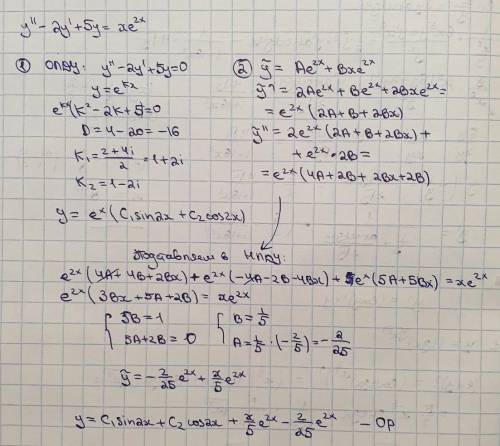 y'' - 2y' + 5y = xe^{2x}
① ОЛДУ: y'' - 2y' + 5y = 0
y = e^{kx}
e^{kx}(k² - 2k + 5 = 0
D = 4 - 20 = -16
K₁ = (2 + 4i)/2 = 1 + 2i
K₂ = 1 - 2i
② ỹ = Ae^{2x} + Bxe^{2x}
ỹ' = 2Ae^{2x} + Be^{2x} + 2Bxe^{2x} =
= e^{2x}(2A + B + 2Bx)
ỹ'' = 2e^{2x}(2A + B + 2Bx) +
+ e^{2x} · 2B =
= e^{2x}(4A + 2B + 2Bx + 2B)
y = e^x(C₁sin2x + C₂cos2x)
Подставляем в НЛДУ:
e^{2x}(4A + 4B + 2Bx) + e^{2x}(-4A - 2B - 4Bx) + e^x(5A + 5Bx) = xe^{2x}
e^{2x}(3Bx + 5A + 2B) = xe^{2x}
{ 5B = 1 { B = 1/5
{ 5A + 2B = 0 { A = 1/5 · (-2/5) = -2/25
ỹ = -2/25 e^{2x} + x/5 e^{2x}
y = C₁sin2x + C₂cos2x + x/5 e^{2x} - 2/25 e^{2x} - ОР